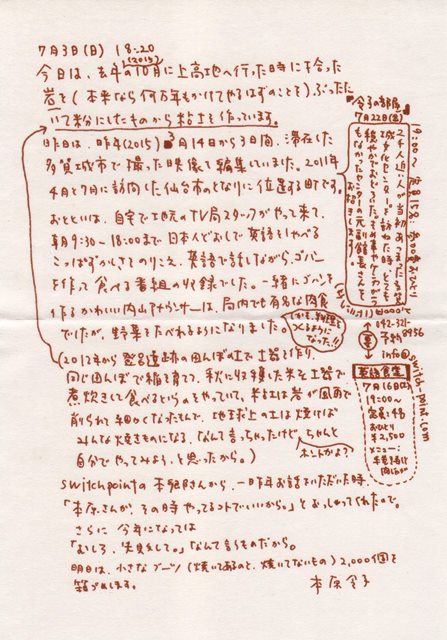 7月3日(日) 18:20
今日は、去年の10月に上高地へ行った時に拾った
(2015)
岩を(本来なら何万年もかけてやるはずのことを)ぶったた
いて粉にしたものから粘土を作っています。
昨日は、昨年(2015)3月14日から3日間、滞在した
多賀城市で撮った映像を編集していました。2011年
4月と7月に訪問した仙台市のとなりに位置する町です。
おとといは、自宅で地元のTV局スタッフがやって来て、
朝9:30〜18:00まで日本人どおしで英語をしゃべる
こっぱずかしさをのりこえ、英語で話しながらゴハン
を作って食べる番組の収録でした。一緒にゴハンを
作るかわいい内山アナウンサーは、局内でも有名な肉食
でしたが、野菜をたべれるようになりました。
しかも、料理を
つくるように
なった!!
(2012年から登呂遺跡の田んぼの土で土器を作り、
同じ田んぼで稲を育て、秋に収穫した米を土器で
煮炊きして食べるというのをやっていて、粘土は岩が風雨で
削られて細かくなったもんで、地球上の土は焼けば
みんな焼きものになる、なんて言っちゃったけど、ちゃんと
ホントかよ?
自分でやってみよう、と思ったから。)
switch pointの本郷さんから、一昨年お話をいただいた時
「本原さんが、その時やってるコトでいいから。」とおっしゃってくれたので。
さらに今年になっては
「むしろ、失敗して。」なんて言うものだから。
明日は、小さなブーツ(焼いてあるのと、焼いてないもの)2,000個を
箱づめします。
本原令子
令子の部屋
7月22日(金)
19:00〜
2千人近い人が当初あつまった多賀
城文化センターを訪ねた時、とても
穏やかでおどろいた。その事やケンカが
もなかったセンターの元副館長さん
お招きします。
042-321-
0956
予約
info@
switch-point.com
英語食堂
7月16日(土)
19:00〜
定員:4名
おひとり
¥2,500
メニュー: